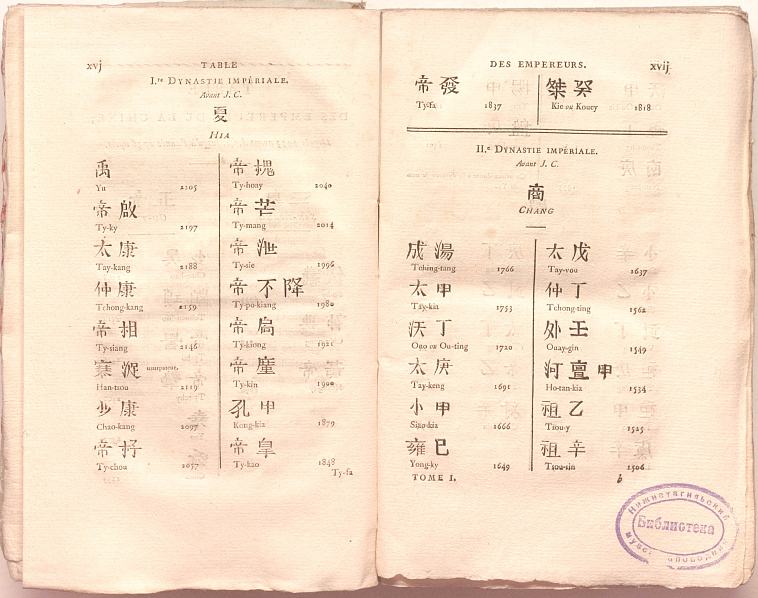 xvj TABLE
I.re DYNASTIE IMPÉRIALE.
Avant J. C.
夏
HIA
禹
Yu 2205
帝啟
Ty-ky 2197
太康
Tay-kang 2188
仲康
Tchong-kang 2159
帝相
Ty-siang 2146
寒浞 usurpateur.
Han-tsou 2119
少康
Chao-kang 2097
帝杼
Ty-chou 2057
帝槐
Ty-hoay 2040
帝芒
Ty-mang 2014
帝泄
Ty-sie 1996
帝不降
Ty-pu-kiang 1980
帝扃
Ty-kiong 1921
帝廑
Ty-kin 1900
孔甲
Kong-kia 1879
帝皐
Ty-kao 1848
Ty-fa
DES EMPEREURS. xvij
帝發
Ty-fa 1837
桀癸
Kie ou Kouey 1818
II.e DYNASTIE IMPÉRIALE.
Avant J. C.
商
CHANG
成湯
Tching-tang 1766
太甲
Tay-kia 1753
沃丁
Ouo ou Ou-ting 1720
太庚
Tay-keng 1691
小甲
Siao-kia 1666
雍已
Yong-ky 1649
太戊
Tay-vou 1637
仲丁
Tchong-ting 1562
外壬
Ouay-gin 1549
河亶甲
Ho-tan-kia 1534
祖乙
Tsou-y 1525
祖辛
Tsou-sin 1506
TOME I. b
Нижнетагильский
Библиотека